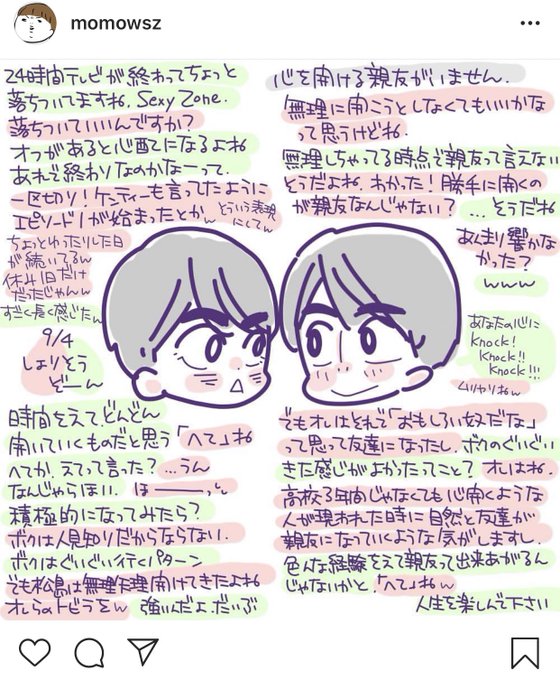 momowsz
24時間テレビが終わってちょっと
落ちついてますね. Sexy Zone.
落ちついていいんですか?
オフがあると心配になるよね
あれで終わりなのかなーって.
一区切り!ケンティーも言ってたように
エピソード1が始まったとかw
どういう表現
にしてw
ちょっとゆったりした日
が続いてるw
休み1日だけ
だったじゃんw
すごく長く感じたw
9/4
しょりそう
ぞーん
時間をえて、どんどん
開いていくものだと思う「へて」ね
へてか.えてって言った?…うん
なんじゃらほい. ほーーっい
積極的になってみたら?
ボクは人見知りだからならない.
ボクはぐいぐい行くパターン
でも松島は無理矢理開けてきたよね
オレらのトビラをw 強いんだよ.だいぶ
心を開ける親友がいません.
無理に開こうとしなくてもいいかな
って思うけどね.
無理しちゃってる時点で親友って言えない
どうだよね.わかった!勝手に開くの
が親友なんじゃない? …そうだね
あんまり響かな
かった?
www
あなたの心に
Knock!
Knock!!
Knock!!!
ムリヤリねw
でもオレはそれで「おもしろい奴だな」
って思って友達になったし.ボクのぐいぐい
きた感じがよかったってこと?オレはね.
高校3年間じゃなくても心開くような
人が現われた時に自然と友達が
親友になっていくような気がしますし.
色んな経験をえて親友って出来あがるん
じゃないかと.「へて」ねw
人生を楽しんで下さい